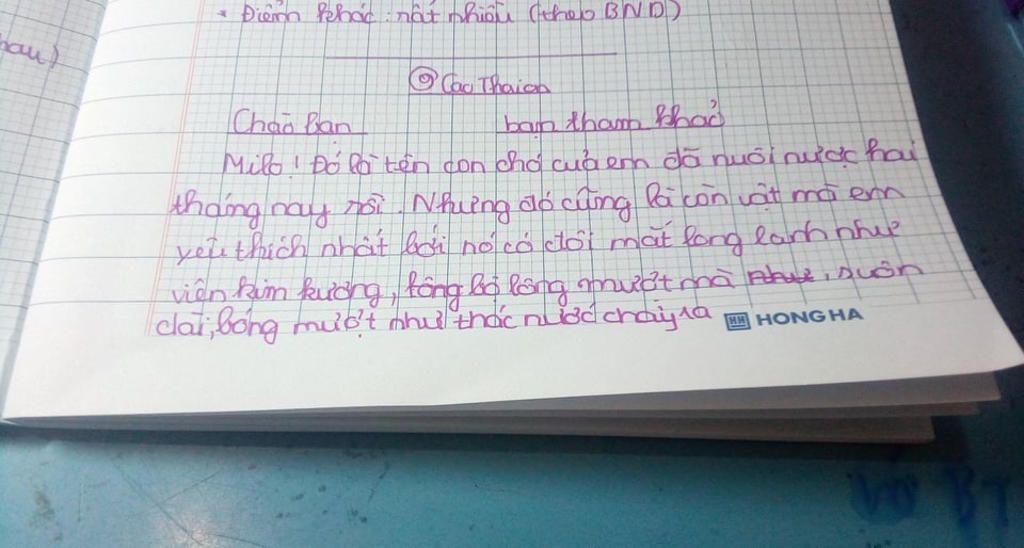 • Điểm khác: rất nhiều (theo BND)
hau)
@ Cac Thaion
Chào Bạn bạn tham khảo
Milo! Đó là tên con chó của em đã nuôi nược hai
tháng nay rồi. Nhưng đó cũng là con vật mà em
yêu thích nhất bởi nó có đôi mắt long lanh như
viên kim kương, lông bộ lông mượt mà như, suôn
dài, bóng mượt như thác nước chảy ra
HH HONG HA